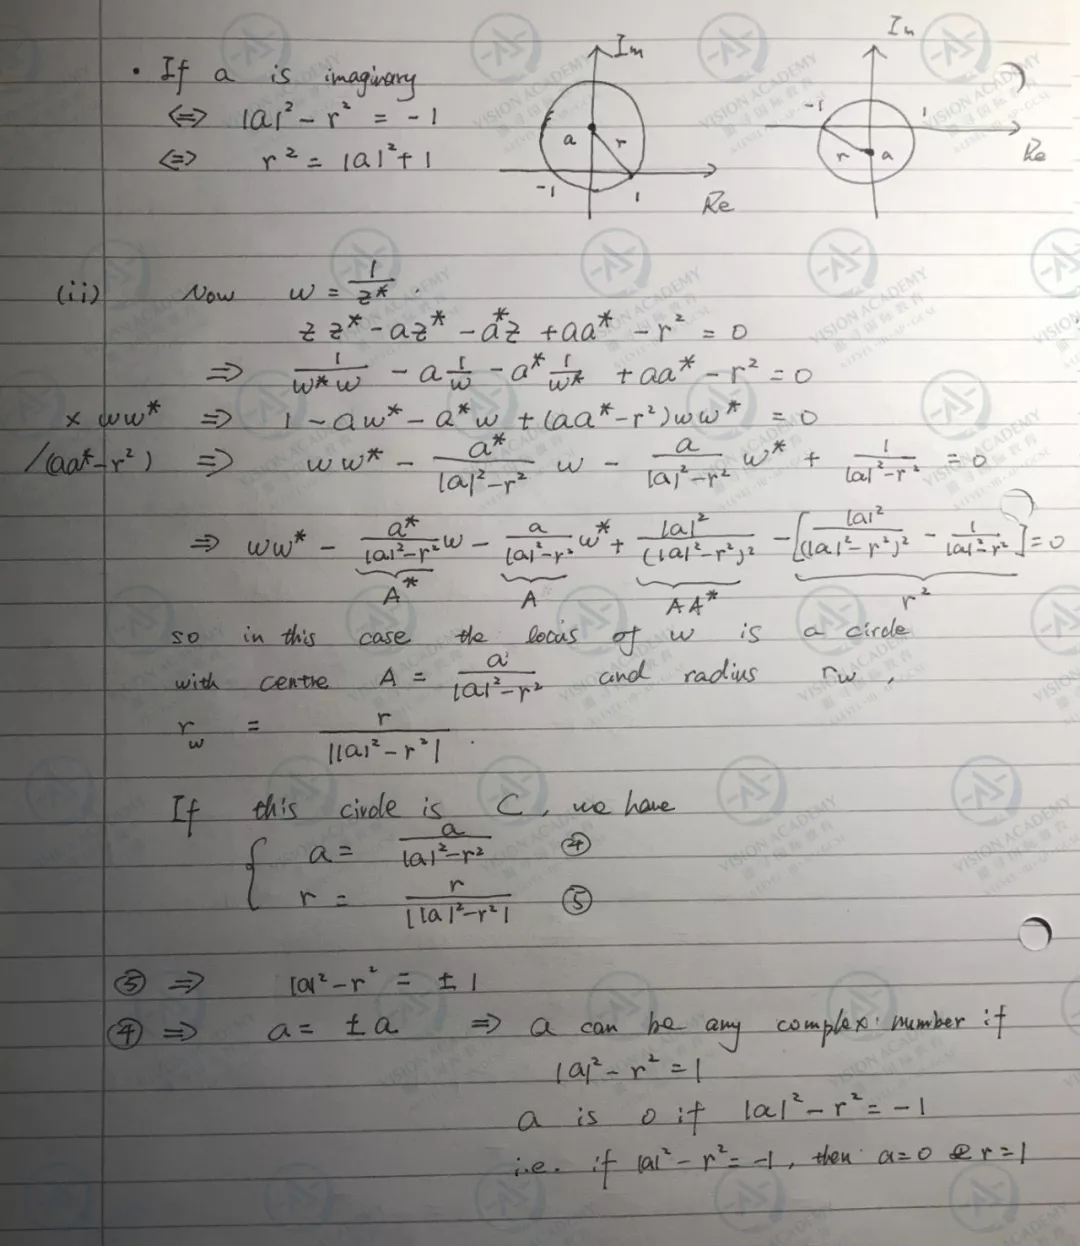 · If a is imaginary
⇔ |a|² - r² = -1
⇔ r² = |a|² + 1
Im
a r
-1 1 Re
Im
-1 1
r a
Re
(ii) Now w = 1/z* .
z z* - az* - a*z + aa* - r² = 0
⇒ 1/(w*w) - a 1/w - a* 1/w* + aa* - r² = 0
× ww* ⇒ 1 - aw* - a*w + (aa* - r²)ww* = 0
/(aa* - r²) ⇒ ww* - a*/(|a|² - r²) w - a/(|a|² - r²) w* + 1/(|a|² - r²) = 0
⇒ ww* - a*/(|a|² - r²) w - a/(|a|² - r²) w* + |a|²/(|a|² - r²)² - [|a|²/(|a|² - r²)² - 1/(|a|² - r²)] = 0
A* A AA* r²
so in this case the locus of w is a circle
with centre A = a/(|a|² - r²) and radius r_w ,
r_w = r/||a|² - r²| .
If this circle is C, we have
{ a = a/(|a|² - r²) ④
r = r/||a|² - r²| ⑤
⑤ ⇒ |a|² - r² = ± 1
④ ⇒ a = ± a ⇒ a can be any complex number if
|a|² - r² = 1
a is 0 if |a|² - r² = -1
i.e. if |a|² - r² = -1, then a = 0 & r = 1
VISION ACADEMY